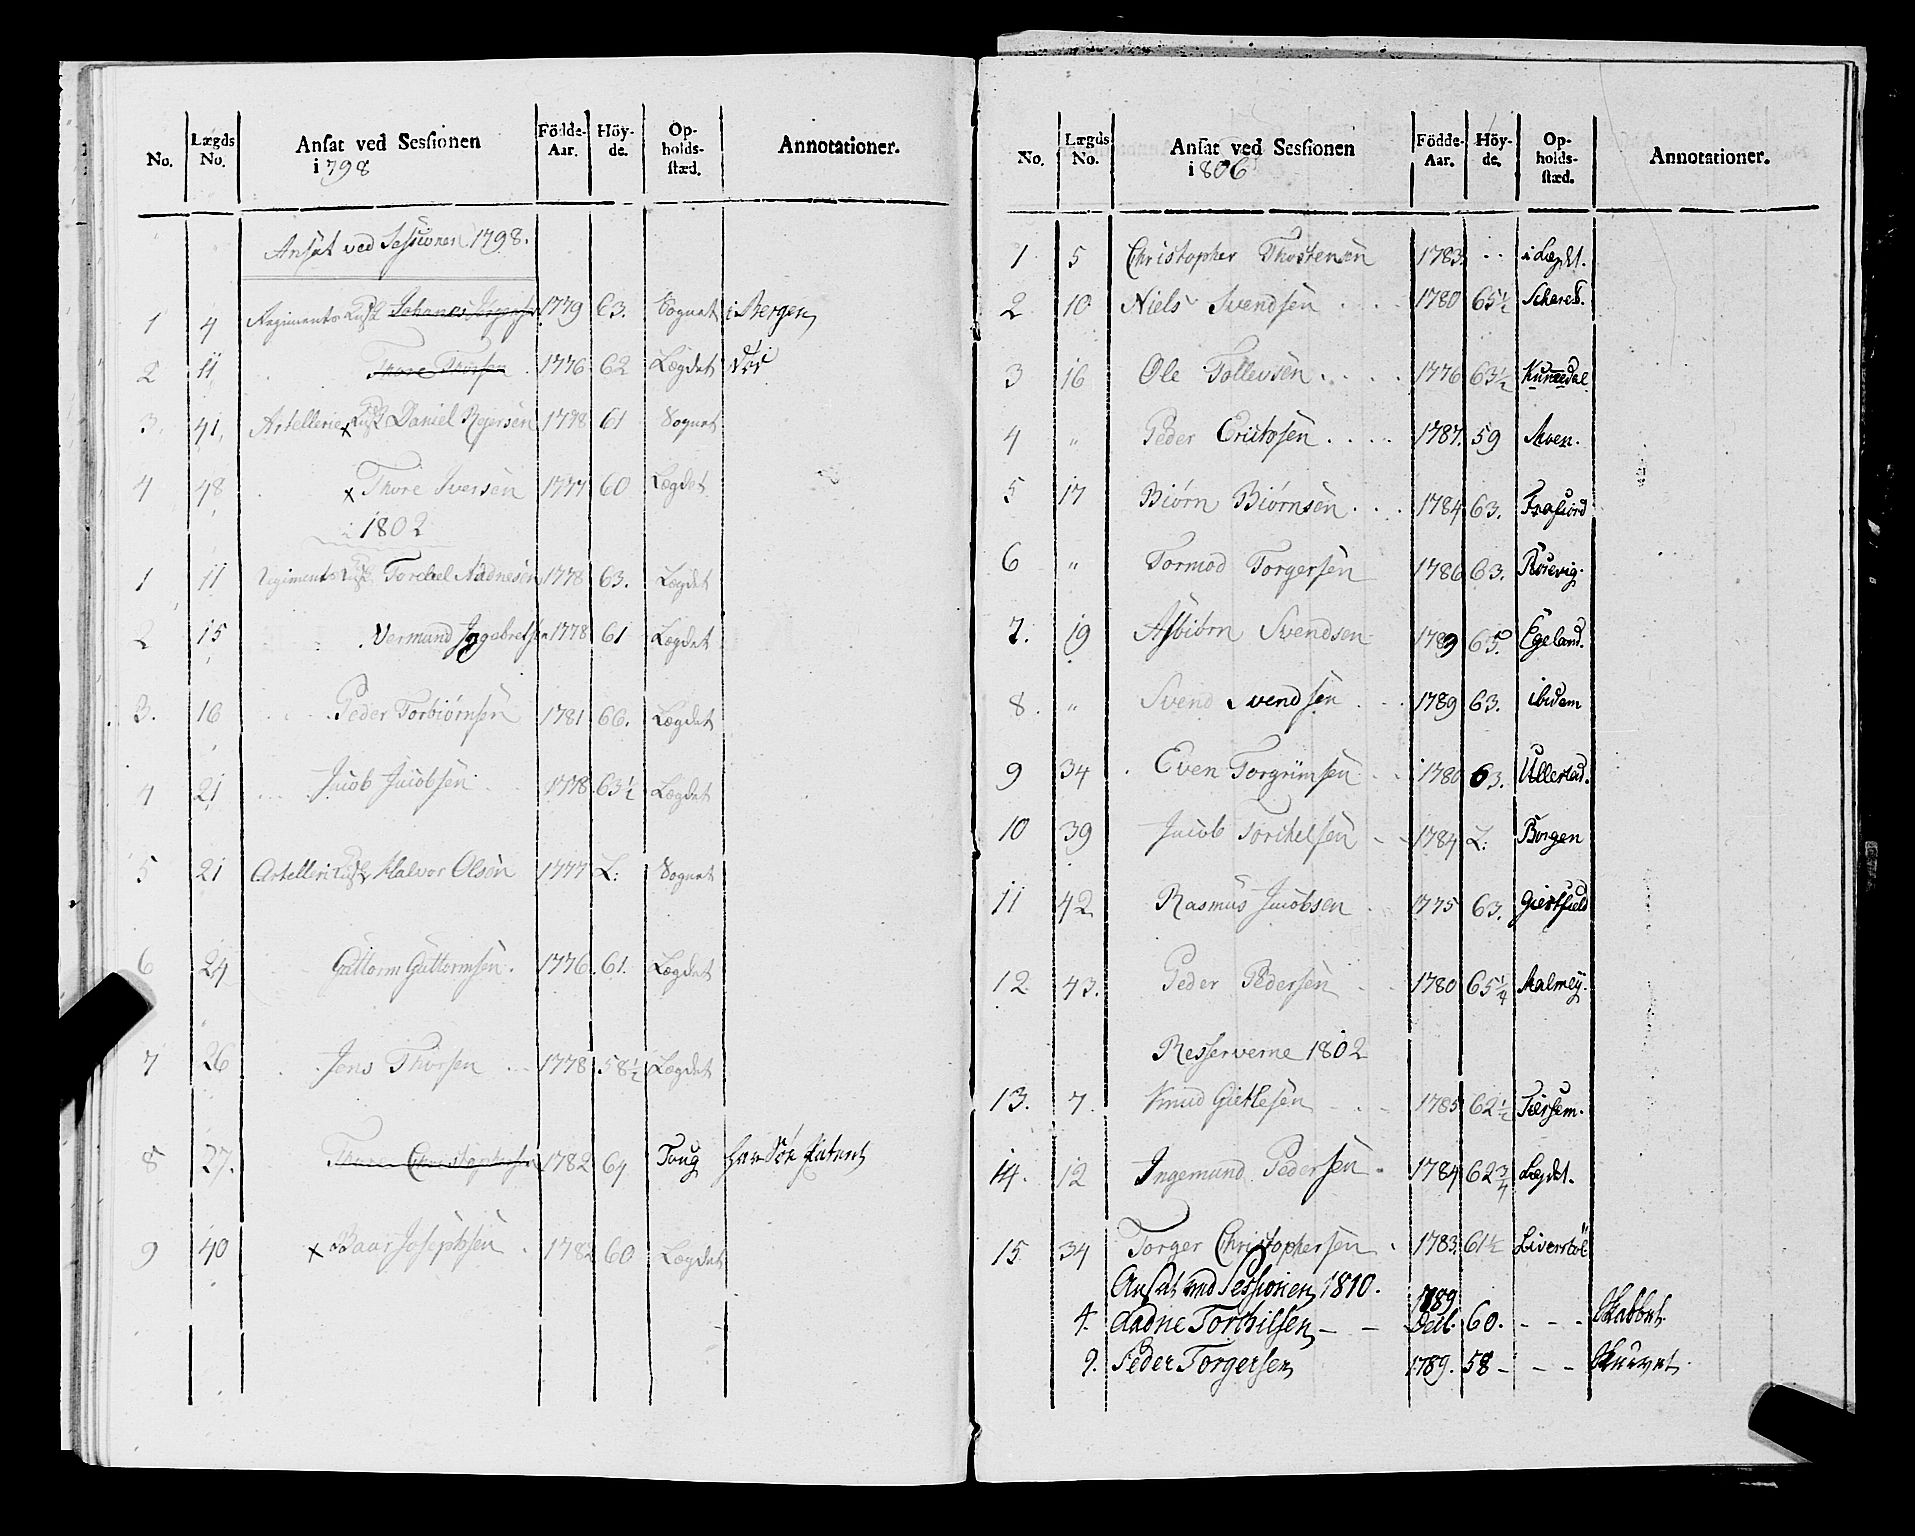 No. Lægds No. Ansat ved Sessionen i 1798 Födde-Aar. Höy-de. Op-holds-stæd. Annotationer.
Ansat ved Sessionen 1798.
1 4 Regiments Kusk Johannes 1779 63. Sognet i Bergen
2 11 Thore Thorsen 1776 62 Lægdet
3. 41. Artellerie x Kusk Daniel Rejersen 1778 61 Sognet
4 48 x Thore Iversen 1777 60 Lægdet
i 1802
1 11 Regiments Kusk Torchel Aadnesen 1778 63. Lægdet
2 15 Vermund Iggebretsen 1778 61 Lægdet
3. 16 Peder Torbiørnsen 1781 66. Lægdet
4 21 Jacob Jacobsen 1778 63½ Lægdet
5 21 Artelleri Kusk Halvor Olsøn 1777 L: Sognet
6 24 Guttorm Guttormsen. 1776 61. Lægdet
7 26 Jens Thorsen 1778 58½ Lægdet
8 27. Thore Christophersen 1782 64 Toug har Søe Patent
9 40 x Baar Josephsen 1782 60 Lægdet
No. Lægds No. Ansat ved Sessionen i 1806 Födde-Aar. Höy-de. Op-holds-stæd. Annotationer.
1 5 Christopher Thostensen 1783. i Lægdt.
2 10 Niels Svendsen 1780 65½
3 16 Ole Tollevsen 1776 63½ Kunnedal
4 " Peder Erichsen 1787. 59 Moen.
5 17 Biørn Biørnsen 1784 63. Frafiord
6 " Tormod Torgersen 1786 63. Rosevig.
7. 19 Asbiörn Svendsen 1789 65. Egeland.
8. " Svend Svendsen 1789 63. ibidem
9 34 Even Torgrimsen 1780 63. Ullestad.
10 39 Jacob Torchelsen 1784 L: Borgen
11 42 Rasmus Jacobsen 1775 63. Giestfield
12 43. Peder Pedersen 1780 65¼ Malmey.
Resserverne 1802
13. 7. Knud Gietlesen 1785 62½
14. 12 Ingemund Pedersen 1784 62¾ Lægdet.
15 34 Torger Christophersen 1783. 61½ Liverstöl
Ansat ved Sessionen 1810.
4. Aadne Torchilsen 1789 60. Skabbet.
9. Peder Torgersen 1789. 58 Skurvet.